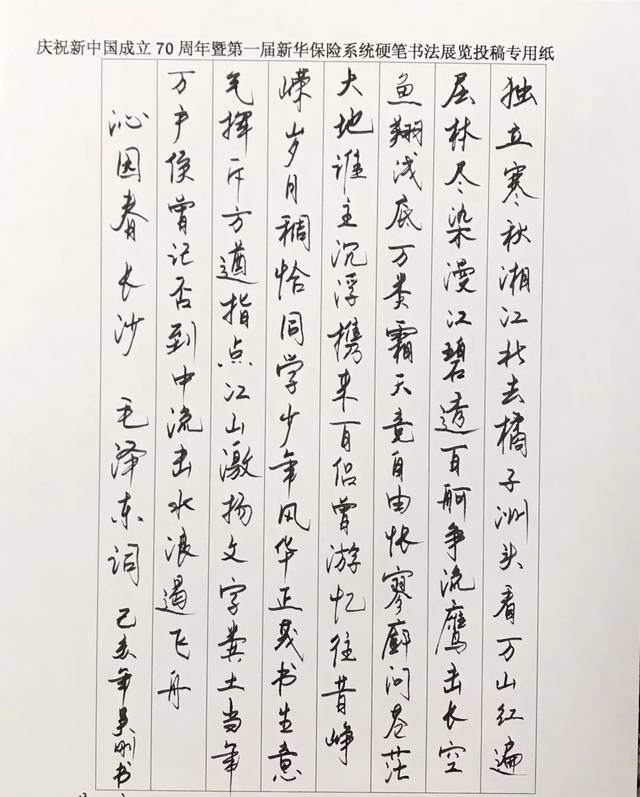 庆祝新中国成立70周年暨第一届新华保险系统硬笔书法展览投稿专用纸
独立寒秋湘江北去橘子洲头看万山红遍
层林尽染漫江碧透百舸争流鹰击长空
鱼翔浅底万类霜天竞自由怅寥廓问苍茫
大地谁主沉浮携来百侣曾游忆往昔峥
嵘岁月稠恰同学少年风华正茂书生意
气挥斥方遒指点江山激扬文字粪土当年
万户侯曾记否到中流击水浪遏飞舟
沁园春长沙 毛泽东词 己亥年吴刚书